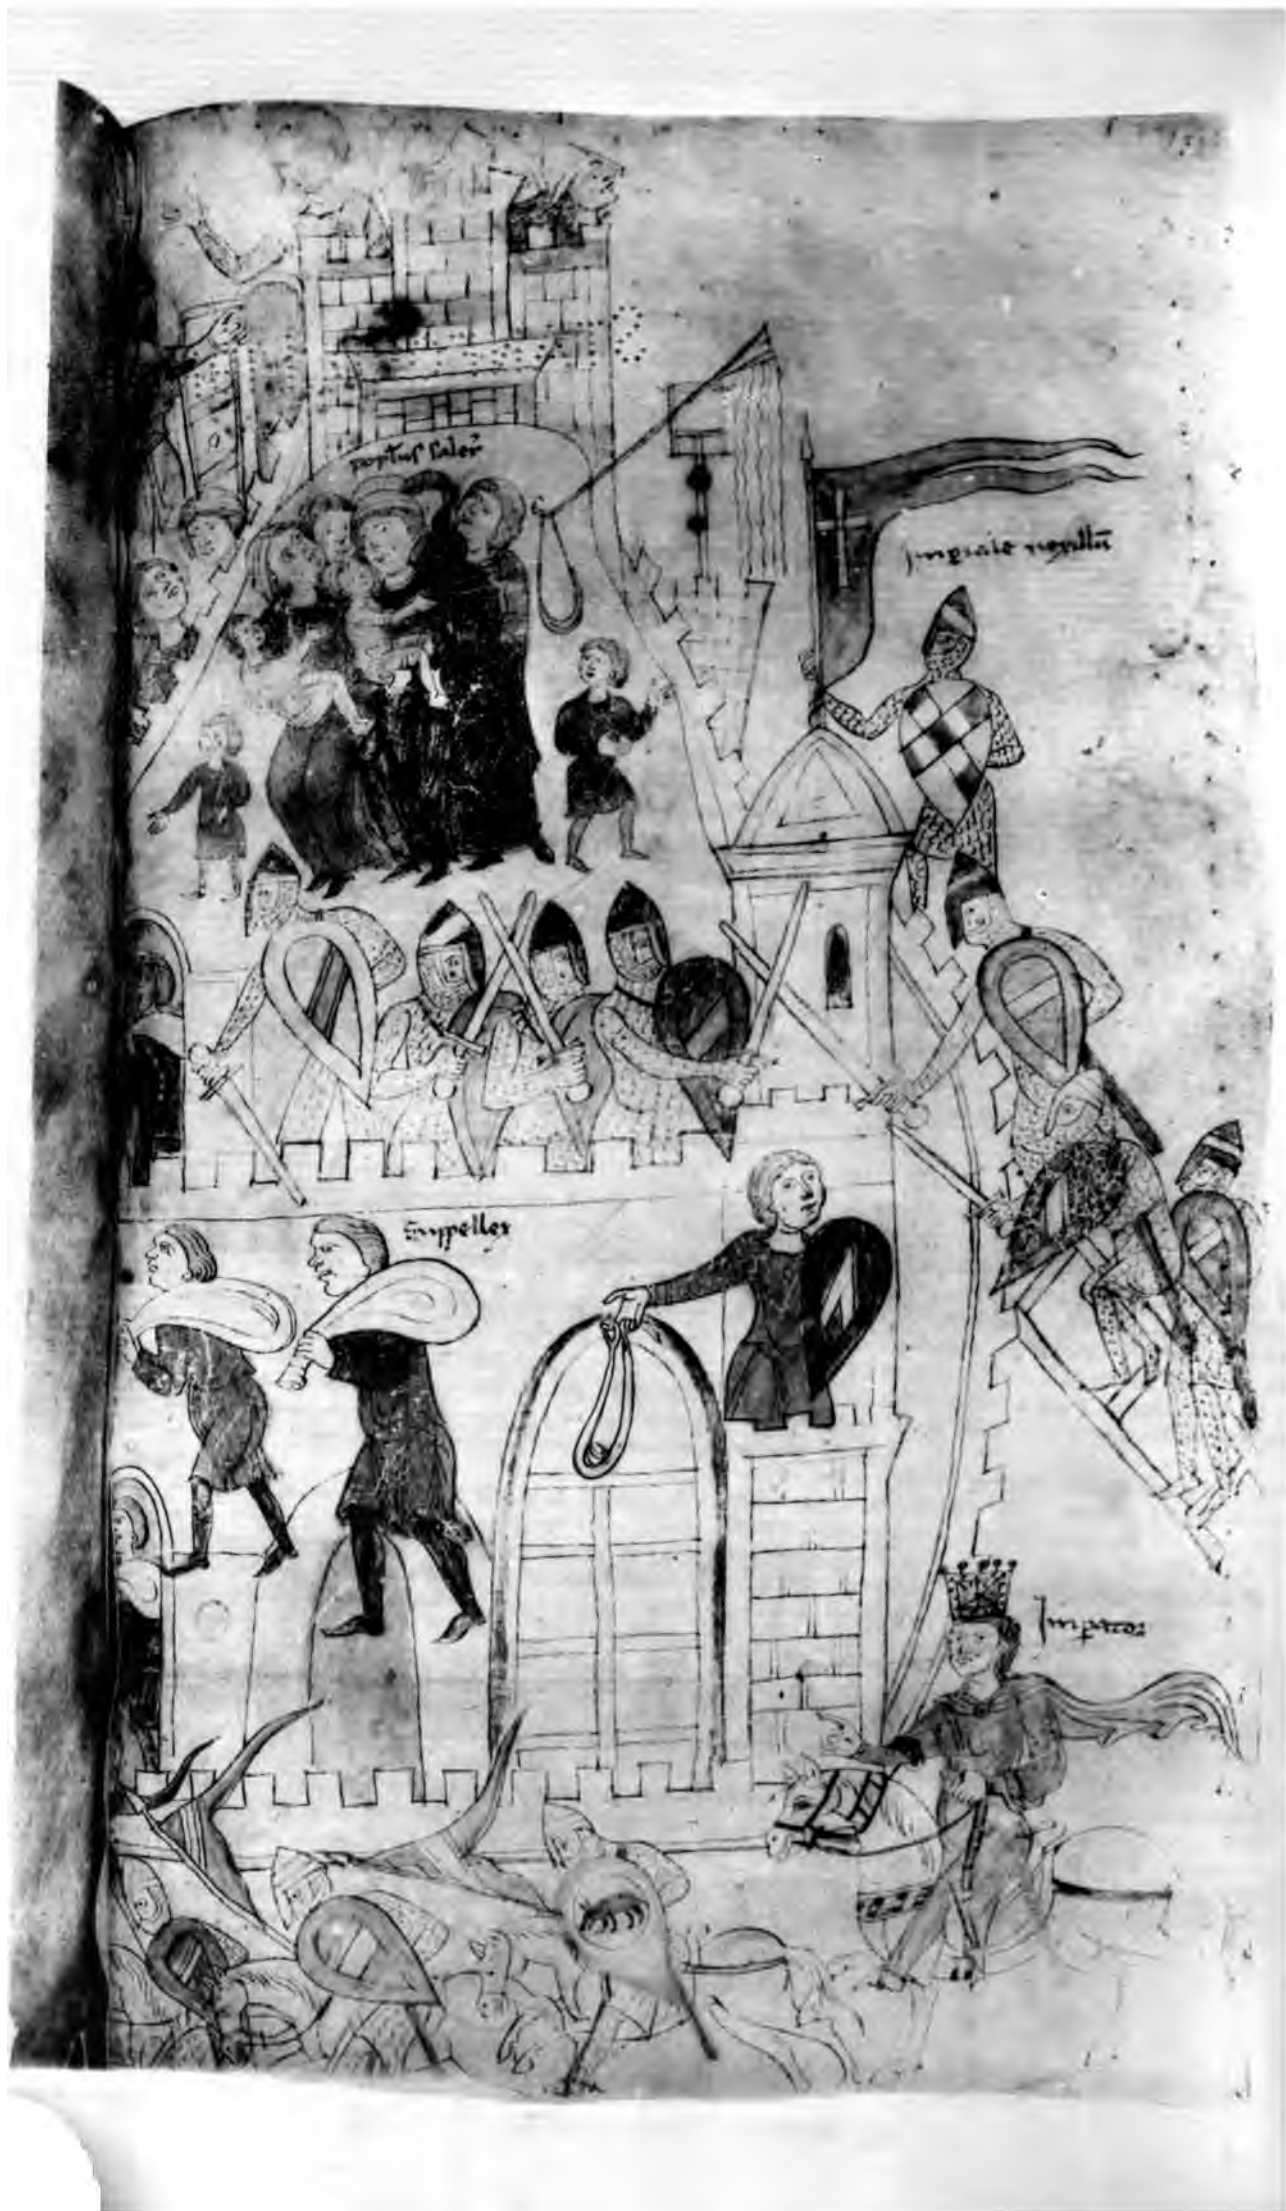 populus saler̄
Imp̄iale vexillū
Suppellex
Imp̄ator